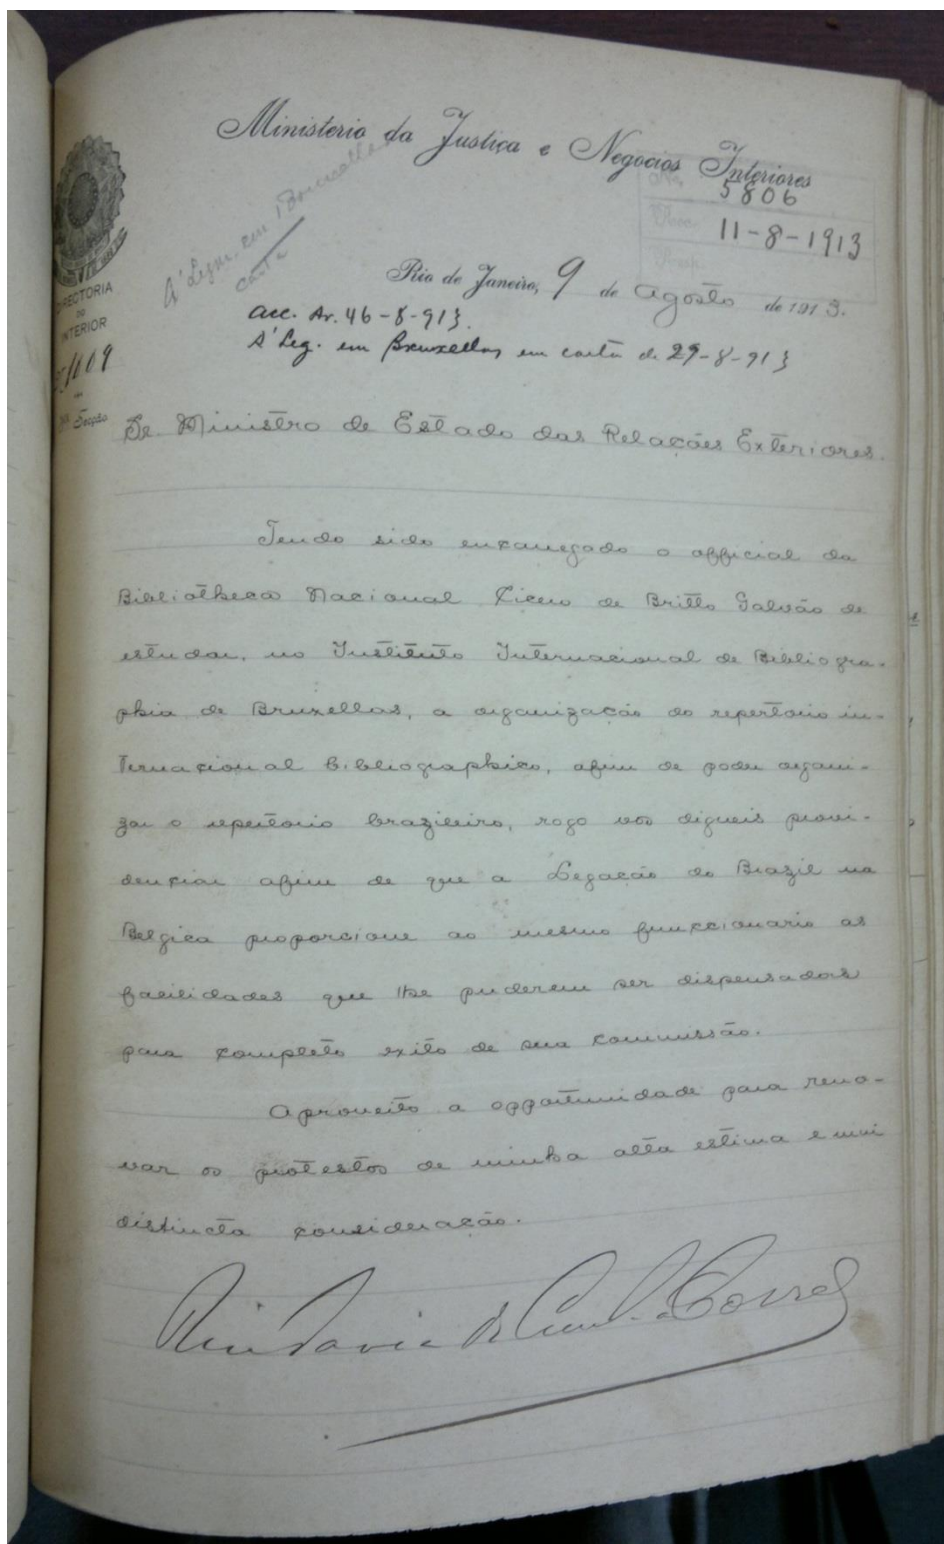 Ministerio da Justiça e Negocios Interiores
No. 5806
Rec. 11-8-1913
Resp.
Á Legaç. em Bruxellas
carta
Rio de Janeiro, 9 de Agosto de 1913.
acc. Av. 46-8-913.
Á Leg. em Bruxellas em carta de 29-8-913
DIRECTORIA
DO
INTERIOR
1609
Secção
Sr. Ministro de Estado das Relações Exteriores.
Tendo sido encarregado o official da
Bibliotheca Nacional Cicero de Britto Galvão de
estudar, no Instituto Internacional de Bibliogra-
phia de Bruxellas, a organização do repertorio in-
ternacional bibliographico, afim de poder organi-
zar o repertorio brazileiro, rogo vos digneis provi-
denciar afim de que a Legação do Brazil na
Belgica proporcione ao mesmo funccionario as
facilidades que lhe puderem ser dispensadas
para completo exito de sua commissão.
Aproveito a opportunidade para reno-
var os protestos de minha alta estima e mui
distincta consideração.
Rivadavia da Cunha Corrêa